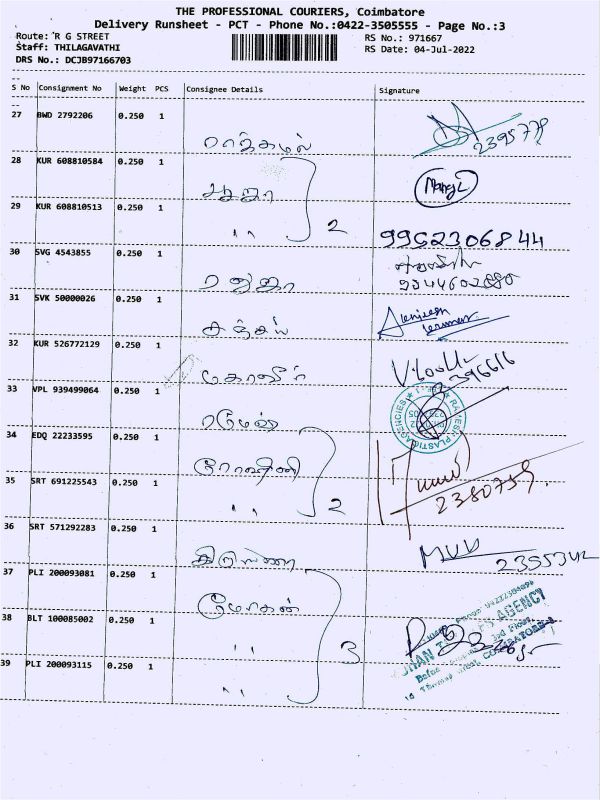 THE PROFESSIONAL COURIERS, Coimbatore
Delivery Runsheet - PCT - Phone No.:0422-3505555 - Page No.:3
Route: R G STREET
RS No.: 971667
Staff: THILAGAVATHI
RS Date: 04-Jul-2022
DRS No.: DCJB97166703
S No Consignment No Weight PCS Consignee Details Signature
27 BWD 2792206 0.250 1
ராஜ்கமல் 2395779
28 KUR 608810584 0.250 1
பூஜா
29 KUR 608810513 0.250 1
" 2
9952306844
30 SVG 4543855 0.250 1
ராஜா
31 SVK 50000026 0.250 1
சஞ்சய்
32 KUR 526772129 0.250 1
2396616
33 VPL 939499064 0.250 1
ரமேஷ் RAJESH PLASTIC AGENCIES
34 EDQ 22233595 0.250 1
ரோஹினி
2380759
35 SRT 691225543 0.250 1
" 2
36 SRT 571292283 0.250 1
கிருஷ்ணா 2355342
37 PLI 200093081 0.250 1
மோகன்
38 BLT 100085002 0.250 1
" 3
AGENCY
39 PLI 200093115 0.250 1
"